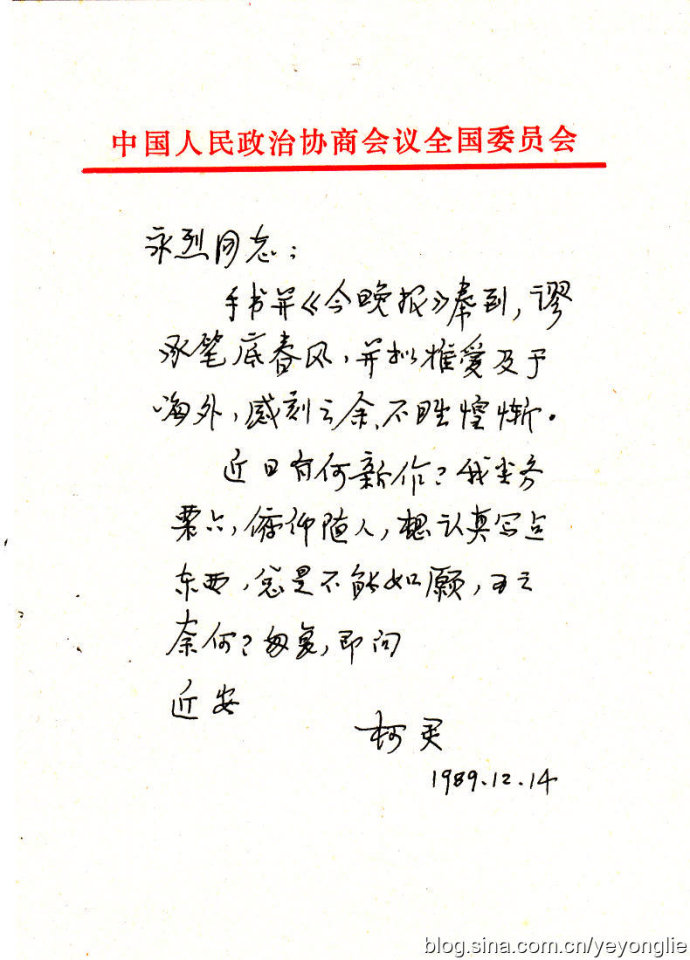 中国人民政治协商会议全国委员会
永烈同志：
手书并《今晚报》奉到，谬
承笔底春风，并拟推爱及于
海外，感刻之余、不胜惶惭。
近日有何新作？我尘务
栗六，俯仰随人，想认真写点
东西，总是不能如愿，为之
奈何？匆复，即问
近安
柯灵
1989.12.14
blog.sina.com.cn/yeyonglie